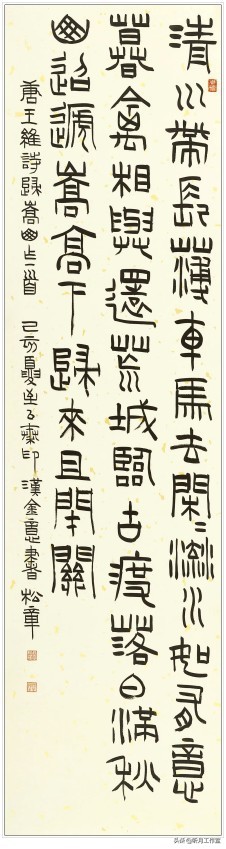 清川帶長薄車馬去閑〻流水如有意
暮禽相與還荒城臨古渡落日滿秋
山迢遞嵩高下歸來且閉關
唐王維詩歸嵩山作一首 己亥夏 印漢金意書 松章